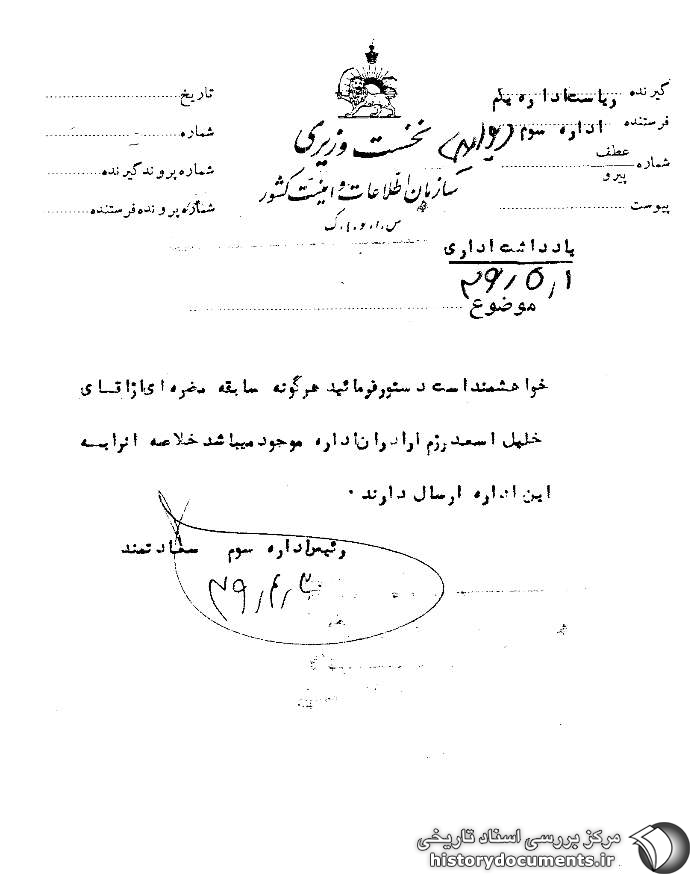 گیرنده ریاست اداره یکم
فرستنده اداره سوم
شماره عطف
پیرو
پیوست
نخست وزیری
سازمان اطلاعات و امنیت کشور
س.ا.و.ا.ک
تاریخ
شماره
شماره پرونده گیرنده
شماره پرونده فرستنده
یادداشت اداری
موضوع
خواهشمند است دستور فرمائید هرگونه سابقه مضره ای از آقای
خلیل اسعد رزم ارا در ان اداره موجود میباشد خلاصه انرا به
این اداره ارسال دارند .
رئیس اداره سوم سعادتمند
مرکز بررسی اسناد تاریخی
historydocuments.ir